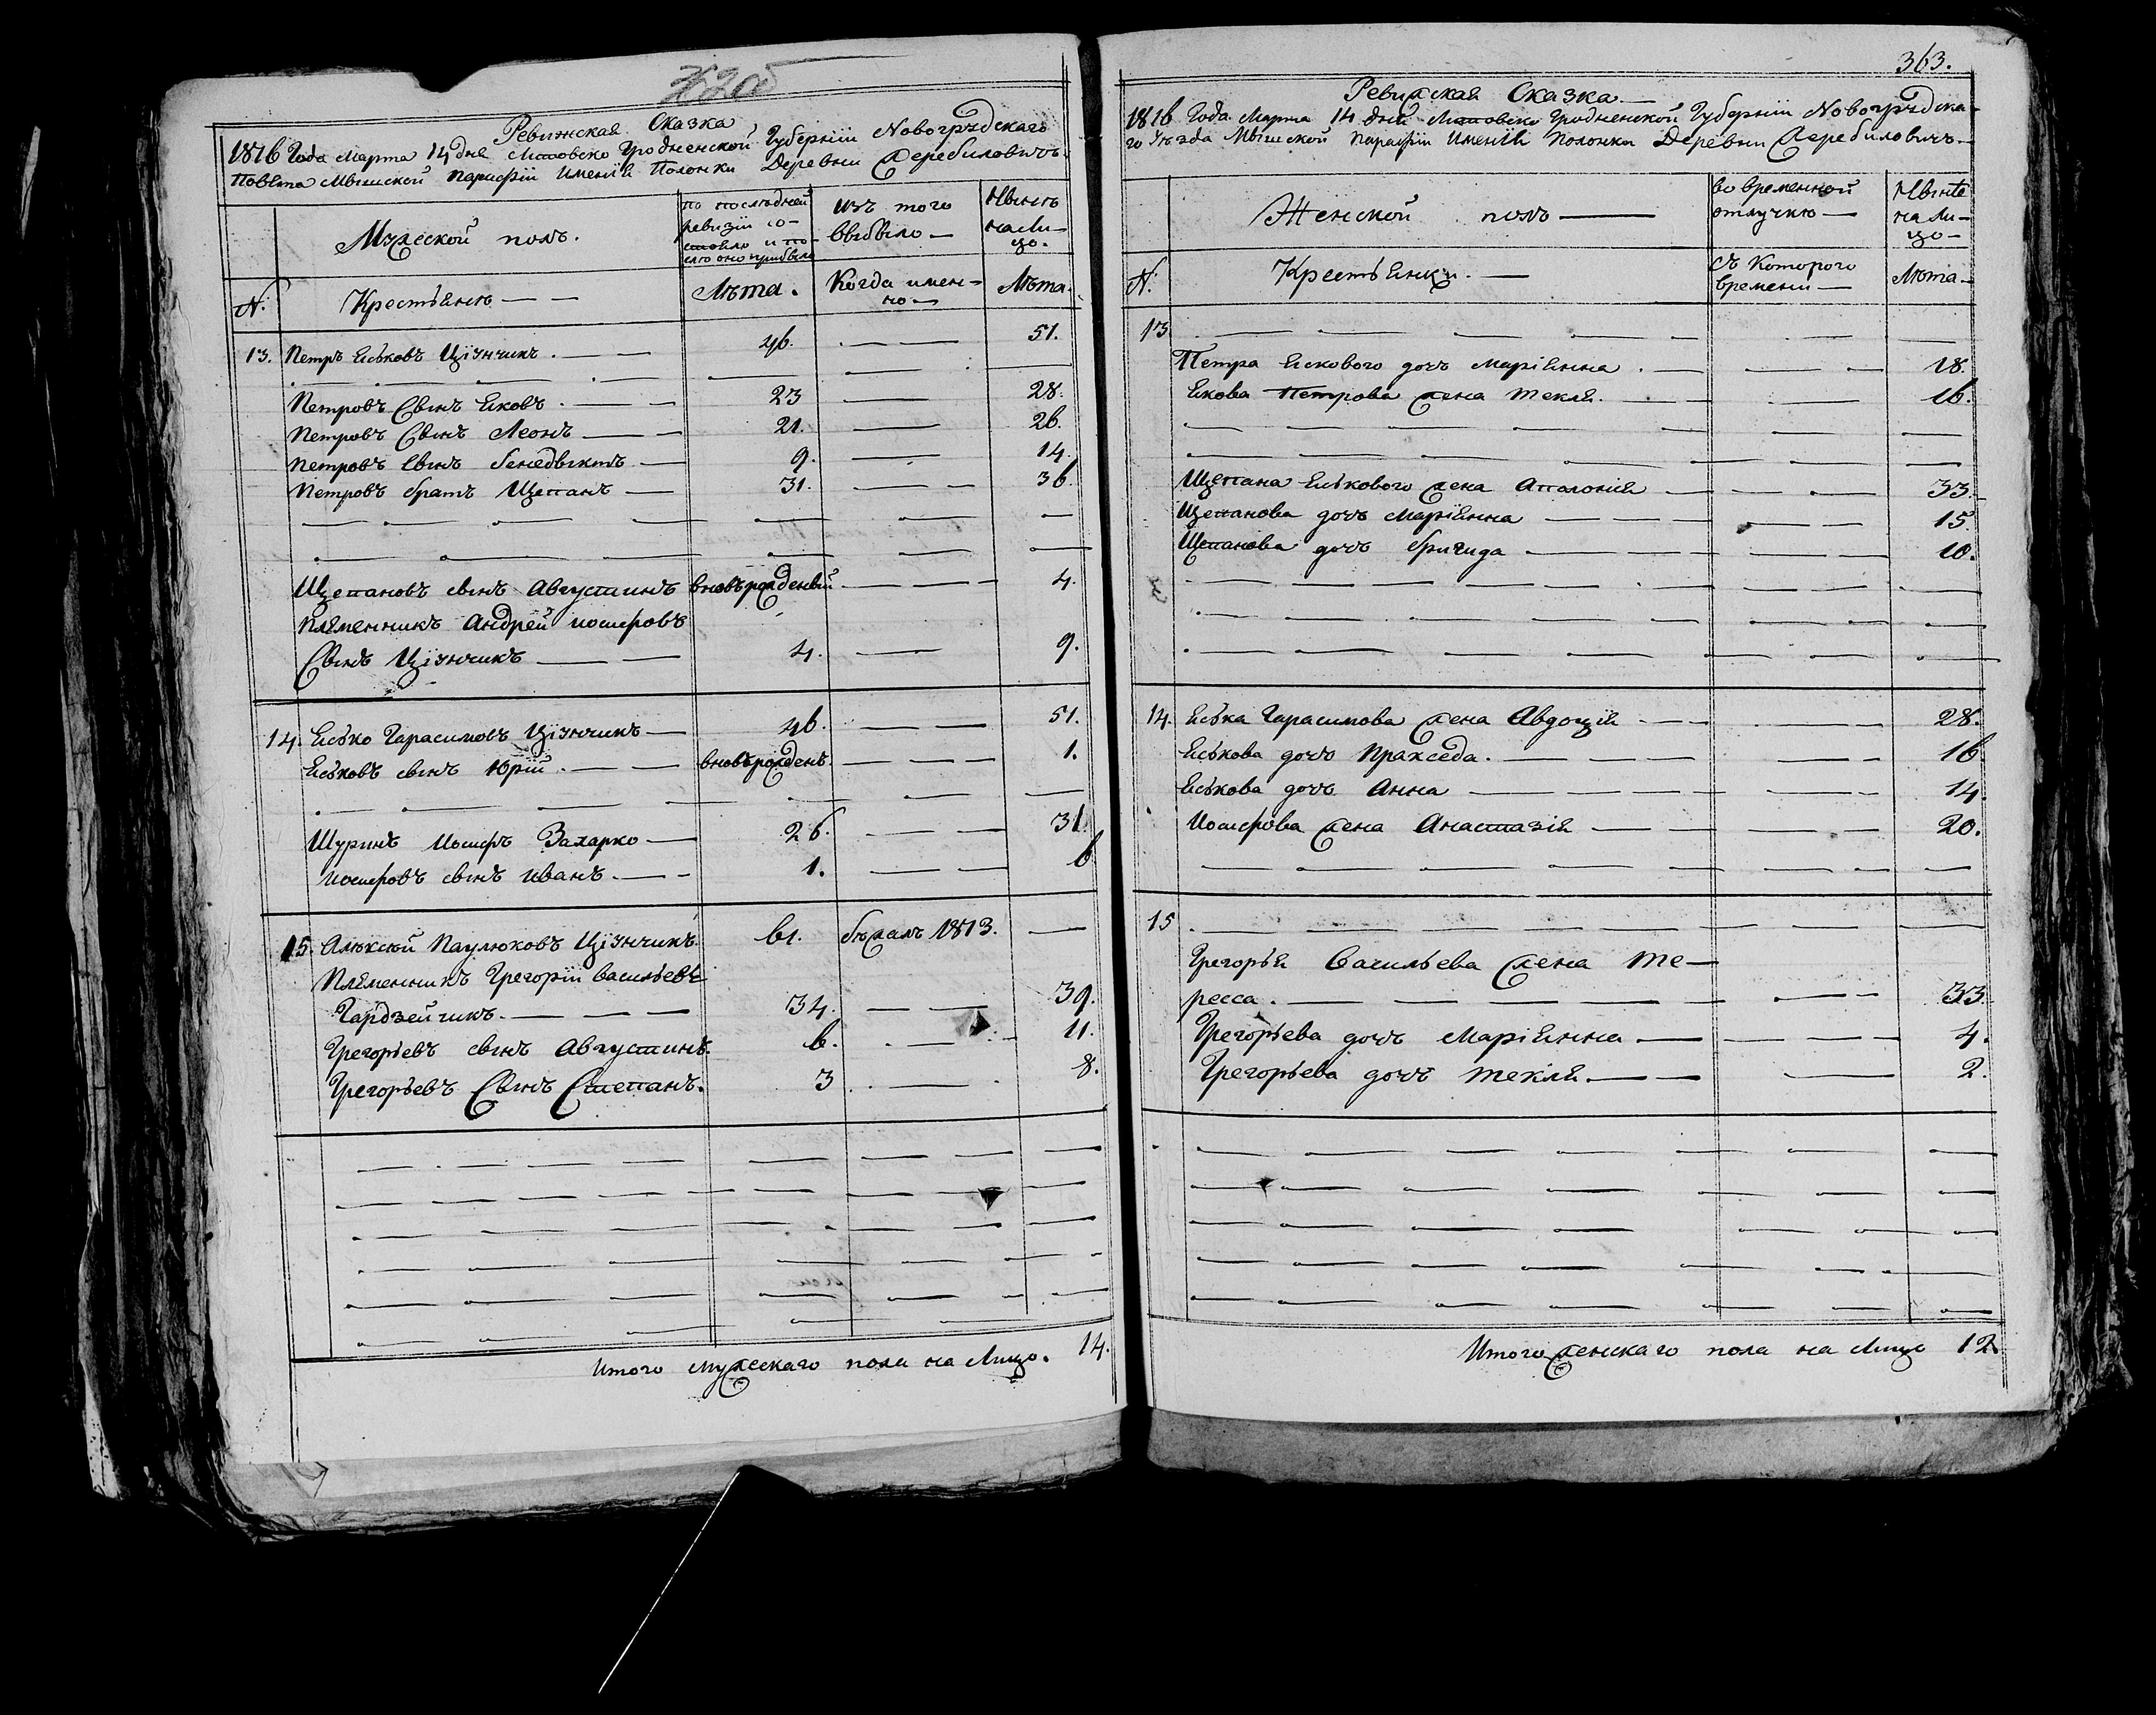 Ревижская Сказка
1816 Года Марта 14 дня Литовско Гродненской Губернiи Новогрудскаго
Повѣта Мышской Парафiи Именiя Полонки Деревни Жеребиловичъ
Мужеской полъ.
по послѣдней ревизiи со-
стояло и по-
слѣ оно прибыло
изъ того
выбыло —
Нынѣ
на Ли-
цо.
N:
Крестьянѣ — —
Лѣта.
Когда имен-
но —
Лѣта.
13. Петръ Еськовъ Цiзнчикъ . — — 46. — — 51.
Петровъ Сынъ Яковъ . — — 23 — 28.
Петровъ Сынъ Леонъ — — 21. — 26.
Петровъ Сынъ Бенедыктъ — 9. — 14.
Петровъ братъ Щепанъ — 31. — — 36.
Щепановъ сынъ Августинъ вновърожденый — — — 4.
Племенникъ Андрей иосифовъ
Сынъ Цiзнчикъ — — 4. — 9.
14. Еѣско Гарасимовъ Цiзнчикъ — 46. — — 51.
Еськовъ сынъ Юрiй . — — вновърожденъ. — — — 1.
Шуринъ Иосифъ Захарко — 26. — — 31.
иосифовъ сынъ иванъ . — - 1. — — 6
15. Алексѣй Паулюковъ Цiзнчикъ 61. бѣжалъ 1813. —
Племенникъ Грегорiй васильевъ
Гардзейчикъ. — — — 34. — — 39.
Грегорьевъ сынъ Августинъ. 6. . — . - 11.
Грегорьевъ Сынъ Степанъ. 3 . — . 8.
Итого мужескаго пола на Лицо. 14.
363.
Ревижская Сказка —
1816 Года Марта 14 дня Литовско Гродненской Губернiи Новогрудска-
го Уѣзда Мышской парафiи Именiя Полонки Деревни Жеребиловичъ —
Женской полъ —
во временной
отлучкѣ —
Нынѣ
на Ли-
цо —
N:
Крестьянки. —
съ Которого
времени —
Лѣта —
13
Петра Еского дочъ Марiянна . — — — - 18.
Якова Петрова жена Текля. — — — 16.
Щепана Еськового жена Аполонiя — — — 33.
Щепанова дочъ Марiянна — — — — — 15.
Щепанова дочъ бригида — — — — — 10.
14. Еѣска Гарасимова жена Авдоцiя — - — 28.
Еськова дочъ Праxседа. — — — — 16
Еськова дочъ Анна — — — — — 14.
Иосифова жена Анастазiя — — — — 20.
15
Грегорья Васильева жена Те —
ресса . — — — — — - 33
Грегорьева дочъ Марiянна — — — — 4.
Грегорьева дочъ текля. — — — 2.
Итого женскаго пола на Лицо 12